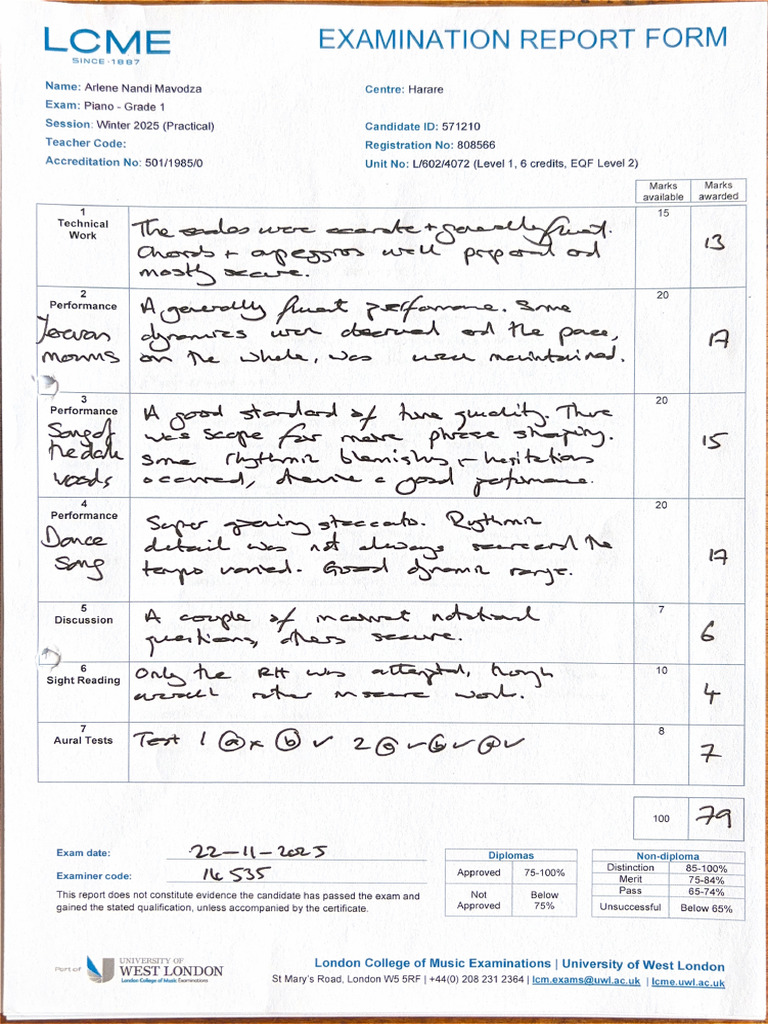 LCME
SINCE·1887
EXAMINATION REPORT FORM
Name: Arlene Nandi Mavodza
Centre: Harare
Exam: Piano - Grade 1
Session: Winter 2025 (Practical)
Candidate ID: 571210
Teacher Code:
Registration No: 808566
Accreditation No: 501/1985/0
Unit No: L/602/4072 (Level 1, 6 credits, EQF Level 2)
Marks available
Marks awarded
1
Technical Work
The scales were accurate + generally fluent.
Chords + arpeggios well prepared and
mostly secure.
15
13
2
Performance
morris
A generally fluent performance. Some
dynamics were observed and the pace,
on the whole, was well maintained.
20
17
3
Performance
Song of
the dark
woods
A good standard of tone quality. There
was scope for more phrase shaping.
Some rhythmic blemishes + hesitations
occurred, otherwise a good performance.
20
15
4
Performance
Dance
Song
Super staccato. Rhythmic
detail was not always secure and the
tempo varied. Good dynamic range.
20
17
5
Discussion
A couple of incorrect notational
questions, others secure.
7
6
6
Sight Reading
Only the RH was attempted, though
overall rather insecure work.
10
4
7
Aural Tests
Test 1 ⓐ x ⓑ ✓ 2 ⓐ ✓ ⓑ ✓ ✓
8
7
100
79
Exam date: 22-11-2025
Examiner code: 14535
This report does not constitute evidence the candidate has passed the exam and
gained the stated qualification, unless accompanied by the certificate.
Diplomas
Approved 75-100%
Not Approved Below 75%
Non-diploma
Distinction 85-100%
Merit 75-84%
Pass 65-74%
Unsuccessful Below 65%
Part of
UNIVERSITY OF
WEST LONDON
London College of Music Examinations
London College of Music Examinations | University of West London
St Mary's Road, London W5 5RF | +44(0) 208 231 2364 | lcm.exams@uwl.ac.uk | lcme.uwl.ac.uk